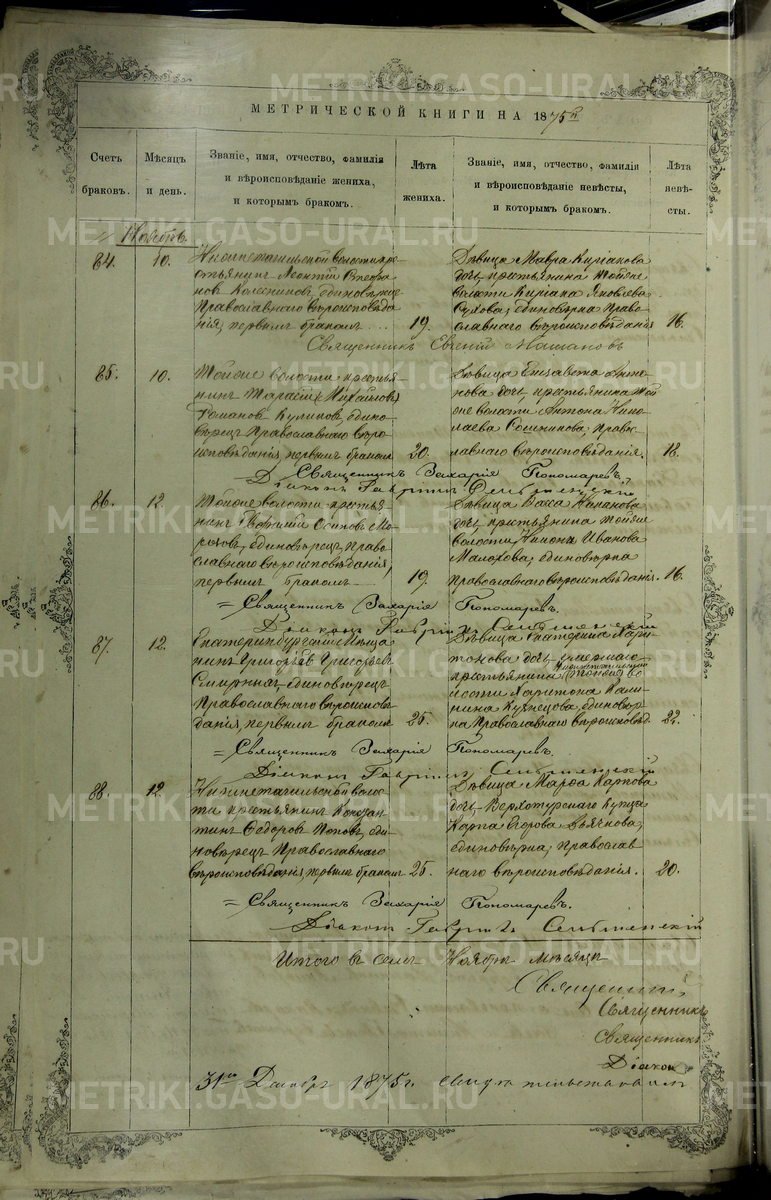 МЕТРИЧЕСКОЙ КНИГИ НА 1875й
Счетъ браковъ.
Мѣсяцъ и день.
Званіе, имя, отчество, фамилія
и вѣроисповѣданіе жениха,
и которымъ бракомъ.
Лѣта жениха.
Званіе, имя, отчество, фамилія
и вѣроисповѣданіе невѣсты,
и которымъ бракомъ.
Лѣта невѣсты.
Ноябрь.
84. 10.
Нижнетагильской волости кре-
стьянинъ Леонтій Стефа-
новъ Колесниковъ, единовѣрецъ
Православнаго вѣроисповѣда-
нія, первымъ бракомъ 19.
Дѣвица Мавра Куріакова
дочь, крестьянина тойже
волости Куріака Яковлева
единовѣрка Право-
славнаго вѣроисповѣданія 16.
Священникъ Евгеній
85. 10.
Тойже волости крестья-
нинъ Тарасій Михайловъ
Романовъ Куликовъ, едино-
вѣрецъ Православнаго вѣро-
исповѣданія, первымъ бракомъ 20.
Дѣвица Елисавета Анто-
нова дочь, крестьянина той
же волости Антона Нико-
лаева Право-
славнаго вѣроисповѣданія. 18.
Священникъ Захарія Пономаревъ.
Діаконъ Гавріилъ
86. 12.
Тойже волости крестья-
нинъ Осиповъ Мо-
розовъ, единовѣрецъ Право-
славнаго вѣроисповѣданія,
первымъ бракомъ 19.
Дѣвица Васса Никонова
дочь, крестьянина тойже
волости, Никона Иванова
Малахова, единовѣрка
Православнаго вѣроисповѣданія. 16.
Священникъ Захарія Пономаревъ.
Діаконъ Гавріилъ
87. 12.
Екатеринбургскій мѣща-
нинъ Григорій Григорьевъ
единовѣрецъ
Православнаго вѣроисповѣ-
данія, первымъ бракомъ 25.
Дѣвица Екатерина Хари-
тонова дочь, умершаго
крестьянина Нижнетагильской во-
лости Харитона Кали-
нина Кузнецова, единовѣр-
ка Православнаго вѣроисповѣд. 22.
Священникъ Захарія Пономаревъ.
Діаконъ Гавріилъ
88. 12.
Нижнетагильской волос-
ти крестьянинъ Констан-
тинъ Ѳедоровъ Поповъ, еди-
новѣрецъ Православнаго
вѣроисповѣданія, первымъ бракомъ 25.
Дѣвица Марѳа Карпова
дочь, Верхотурскаго купца
Карпа Егорова Дьячкова,
единовѣрка, Православ-
наго вѣроисповѣданія. 20.
Священникъ Захарія Пономаревъ.
Діаконъ Гавріилъ
Итого въ семъ Ноябрѣ мѣсяцѣ
Священникъ
Священникъ
Священникъ
Діаконъ
31го Декабря 1875 г. свидѣтельствовали
METRIKI.GASO-URAL.RU